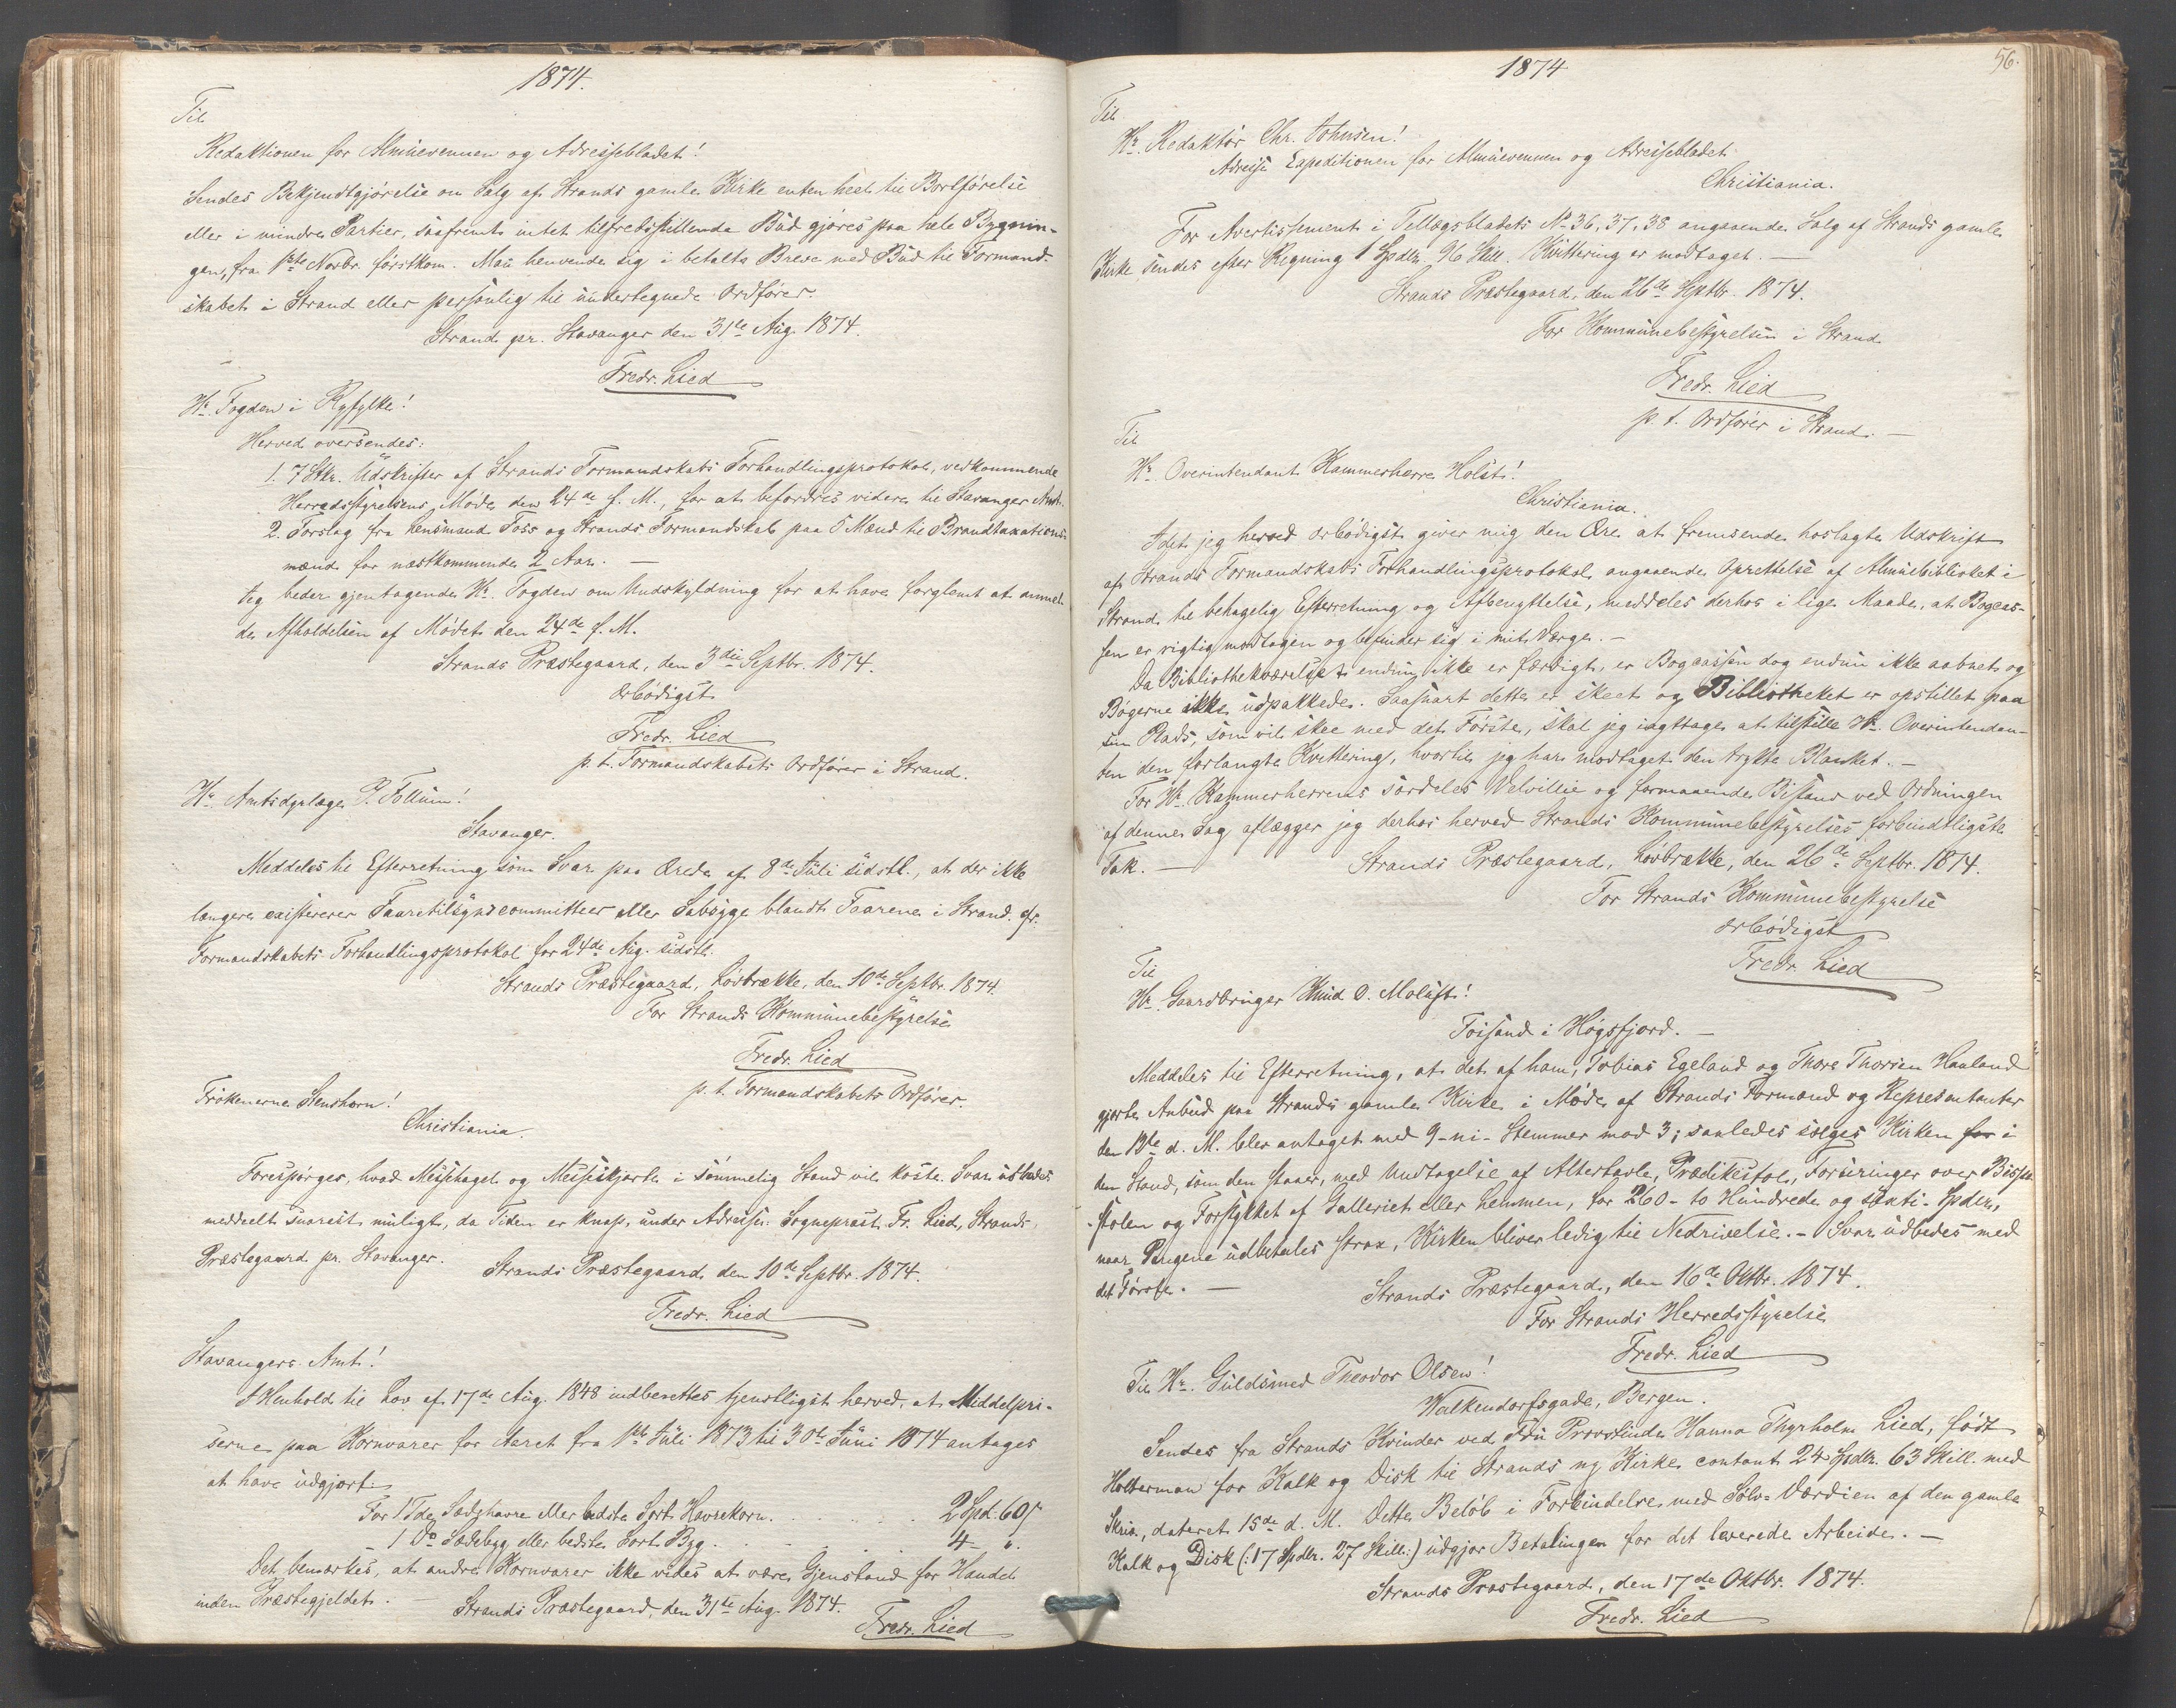 1874.
Til
Redaktionen for Almuevennen og Adressebladet!
Sendes Bekjendtgjørelse om Salg af Strands gamle Kirke enten heel til Bortførelse
eller i mindre Partier, saafremt intet tilfredsstillende Bud gjøres paa hele Bygnin-
gen, fra 1ste Novbr. førstkom. Man henvende sig i betalte Breve med Bud til Formand-
skabet i Strand eller personlig til undertegnede Ordfører.
Strand pr. Stavanger den 31te Aug. 1874.
Fredr. Lied
Hr. Fogden i Ryfylke!
Herved oversendes:
1. 7 Stkr. Udskrifter af Strands Formandskabs Forhandlingsprotokol, vedkommende
Herredsstyrelsens Møde den 24de f. M., for at befordres videre til Stavanger Amt.
2. Forslag fra Lensmand Foss og Strands Formandskab paa 5 Mænd til Brandtaxations-
mænd for næstkommende 2 Aar. —
Jeg beder gjentagende Hr. Fogden om Undskyldning for at have forglemt at anmel-
de Afholdelsen af Mødet den 24de f. M.
Strands Præstegaard, den 3die Septbr. 1874.
Ærbødigst
Fredr. Lied
p. t. Formandskabets Ordfører i Strand.
Hr. Amtsdyrlæge P. Follum!
Stavanger.
Meddeles til Efterretning som Svar paa Ærede af 8de Juli sidstl., at der ikke
længere existerer Faaretilsynscommitteer eller Skabsyge blandt Faarene i Strand. cfr.
Formandskabets Forhandlingsprotokol for 24de Aug. sidstl.
Strands Præstegaard, Løvbrække, den 10de Septbr. 1874.
For Strands Kommunebestyrelse
Fredr. Lied
p. t. Formandskabets Ordfører.
Frøkenerne Stenshorn!
Christiania.
Forespørges, hvad Messehagel og Messeskjorte i sømmelig Stand vil koste. Svar udbedes
meddeelt snarest muligt, da Tiden er knap, under Adresse: Sognepræst Fr. Lied, Strands
Præstegaard pr. Stavanger.
Strands Præstegaard den 10de Septbr. 1874.
Fredr. Lied
Stavangers Amt!
I Henhold til Lov af 17de Aug. 1848 indberettes tjenstligst herved, at Middelpri-
serne paa Kornvarer for Aaret fra 1ste Juli 1873 til 30te Juni 1874 antages
at have udgjort:
For 1 Tde Sædehavre eller bedste Sort Havrekorn. . . . . . . 2 Spd. 60 ß
– 1 Do Sædebyg eller bedste Sort Byg . . . . . . . 4 – ".
Det bemærkes, at andre Kornvarer ikke vides at være Gjenstand for Handel
inden Præstegjeldet. —
Strands Præstegaard, den 31te Aug. 1874.
Fredr. Lied
1874
56.
Til
Hr. Redaktør Chr. Johnsen!
Adresse Expeditionen for Almuevennen og Adressebladet
Christiania.
For Avertissement i Tillægsbladets No 36, 37, 38 angaaende Salg af Strands gamle
Kirke sendes efter Regning 1 Spdlr. 96 Skill. Kvittering er modtaget. —
Strands Præstegaard, den 26de Septbr. 1874.
For Kommunebestyrelsen i Strand
Fredr. Lied
p. t. Ordfører i Strand. —
Til
Hr. Overintendant Kammerherre Holst!
Christiania.
Idet jeg herved ærbødigst giver mig den Ære at fremsende hoslagte Udskrift
af Strands Formandskabs Forhandlingsprotokol angaaende Oprettelse af Almuebibliothek i
Strand til behagelig Efterretning og Afbenyttelse, meddeles derhos i lige Maade, at Bogcas-
sen er rigtig modtagen og befinder sig i mit Værge. —
Da Bibliothekværelset endnu ikke er færdigt, er Bogcassen dog endnu ikke aabnet og
Bøgerne ikke udpakkede. Saasnart dette er skeet og Bibliotheket er opstillet paa
sin Plads, som vil skee med det Første, skal jeg iagttage at tilstille Hr. Overintendan-
ten den forlangte Kvittering, hvortil jeg har modtaget den trykte Blanket. —
For Hr. Kammerherrens særdeles Velvillie og formaaende Bistand ved Ordningen
af denne Sag aflægger jeg derhos herved Strands Kommunebestyrelses forbindtligste
Tak. —
Strands Præstegaard, Løvbrække, den 26de Septbr. 1874.
For Strands Kommunebestyrelse
ærbødigst
Fredr. Lied
Til
Hr. Gaardbruger Knud O.
Foisand i Høgsfjord. —
Meddeles til Efterretning, at det af ham, Tobias Egeland og Thore Thorsen Hauland
gjorte Anbud paa Strands gamle Kirke i Møde af Strands Formænd og Repræsentanter
den 13te d. M. blev antaget med 9 - ni - Stemmer mod 3; saaledes sælges Kirken for i
den Stand, som den staaer, med Undtagelse af Altertavle, Prædikestol, Forsiringer over Bispe-
stolen og Forstykket af Galleriet eller Lemmen, for 260 - to Hundrede og sexti - Spdlr,
naar Pengene udbetales strax, Kirken bliver ledig til Nedrivelse. – Svar udbedes med
det Første. —
Strands Præstegaard, den 16de Oktbr. 1874.
For Strands Herredsstyrelse
Fredr. Lied
Til Hr. Guldsmed Theodor Olsen!
Walkendorfsgade, Bergen.
Sendes fra Strands Kvinder ved Fru Provstinde Hanna Thyrholm Lied, født
Holterman for Kalk og Disk til Strands ny Kirke contant 24 Spdlr. 63 Skill. med
Skriv, dateret 15de d. M. Dette Beløb i Forbindelse med Sølv-Værdien af den gamle
Kalk og Disk (: 17 Spdlr. 27 Skill. :) udgjør Betalingen for det leverede Arbeide. —
Strands Præstegaard, den 17de Oktbr. 1874.
Fredr. Lied